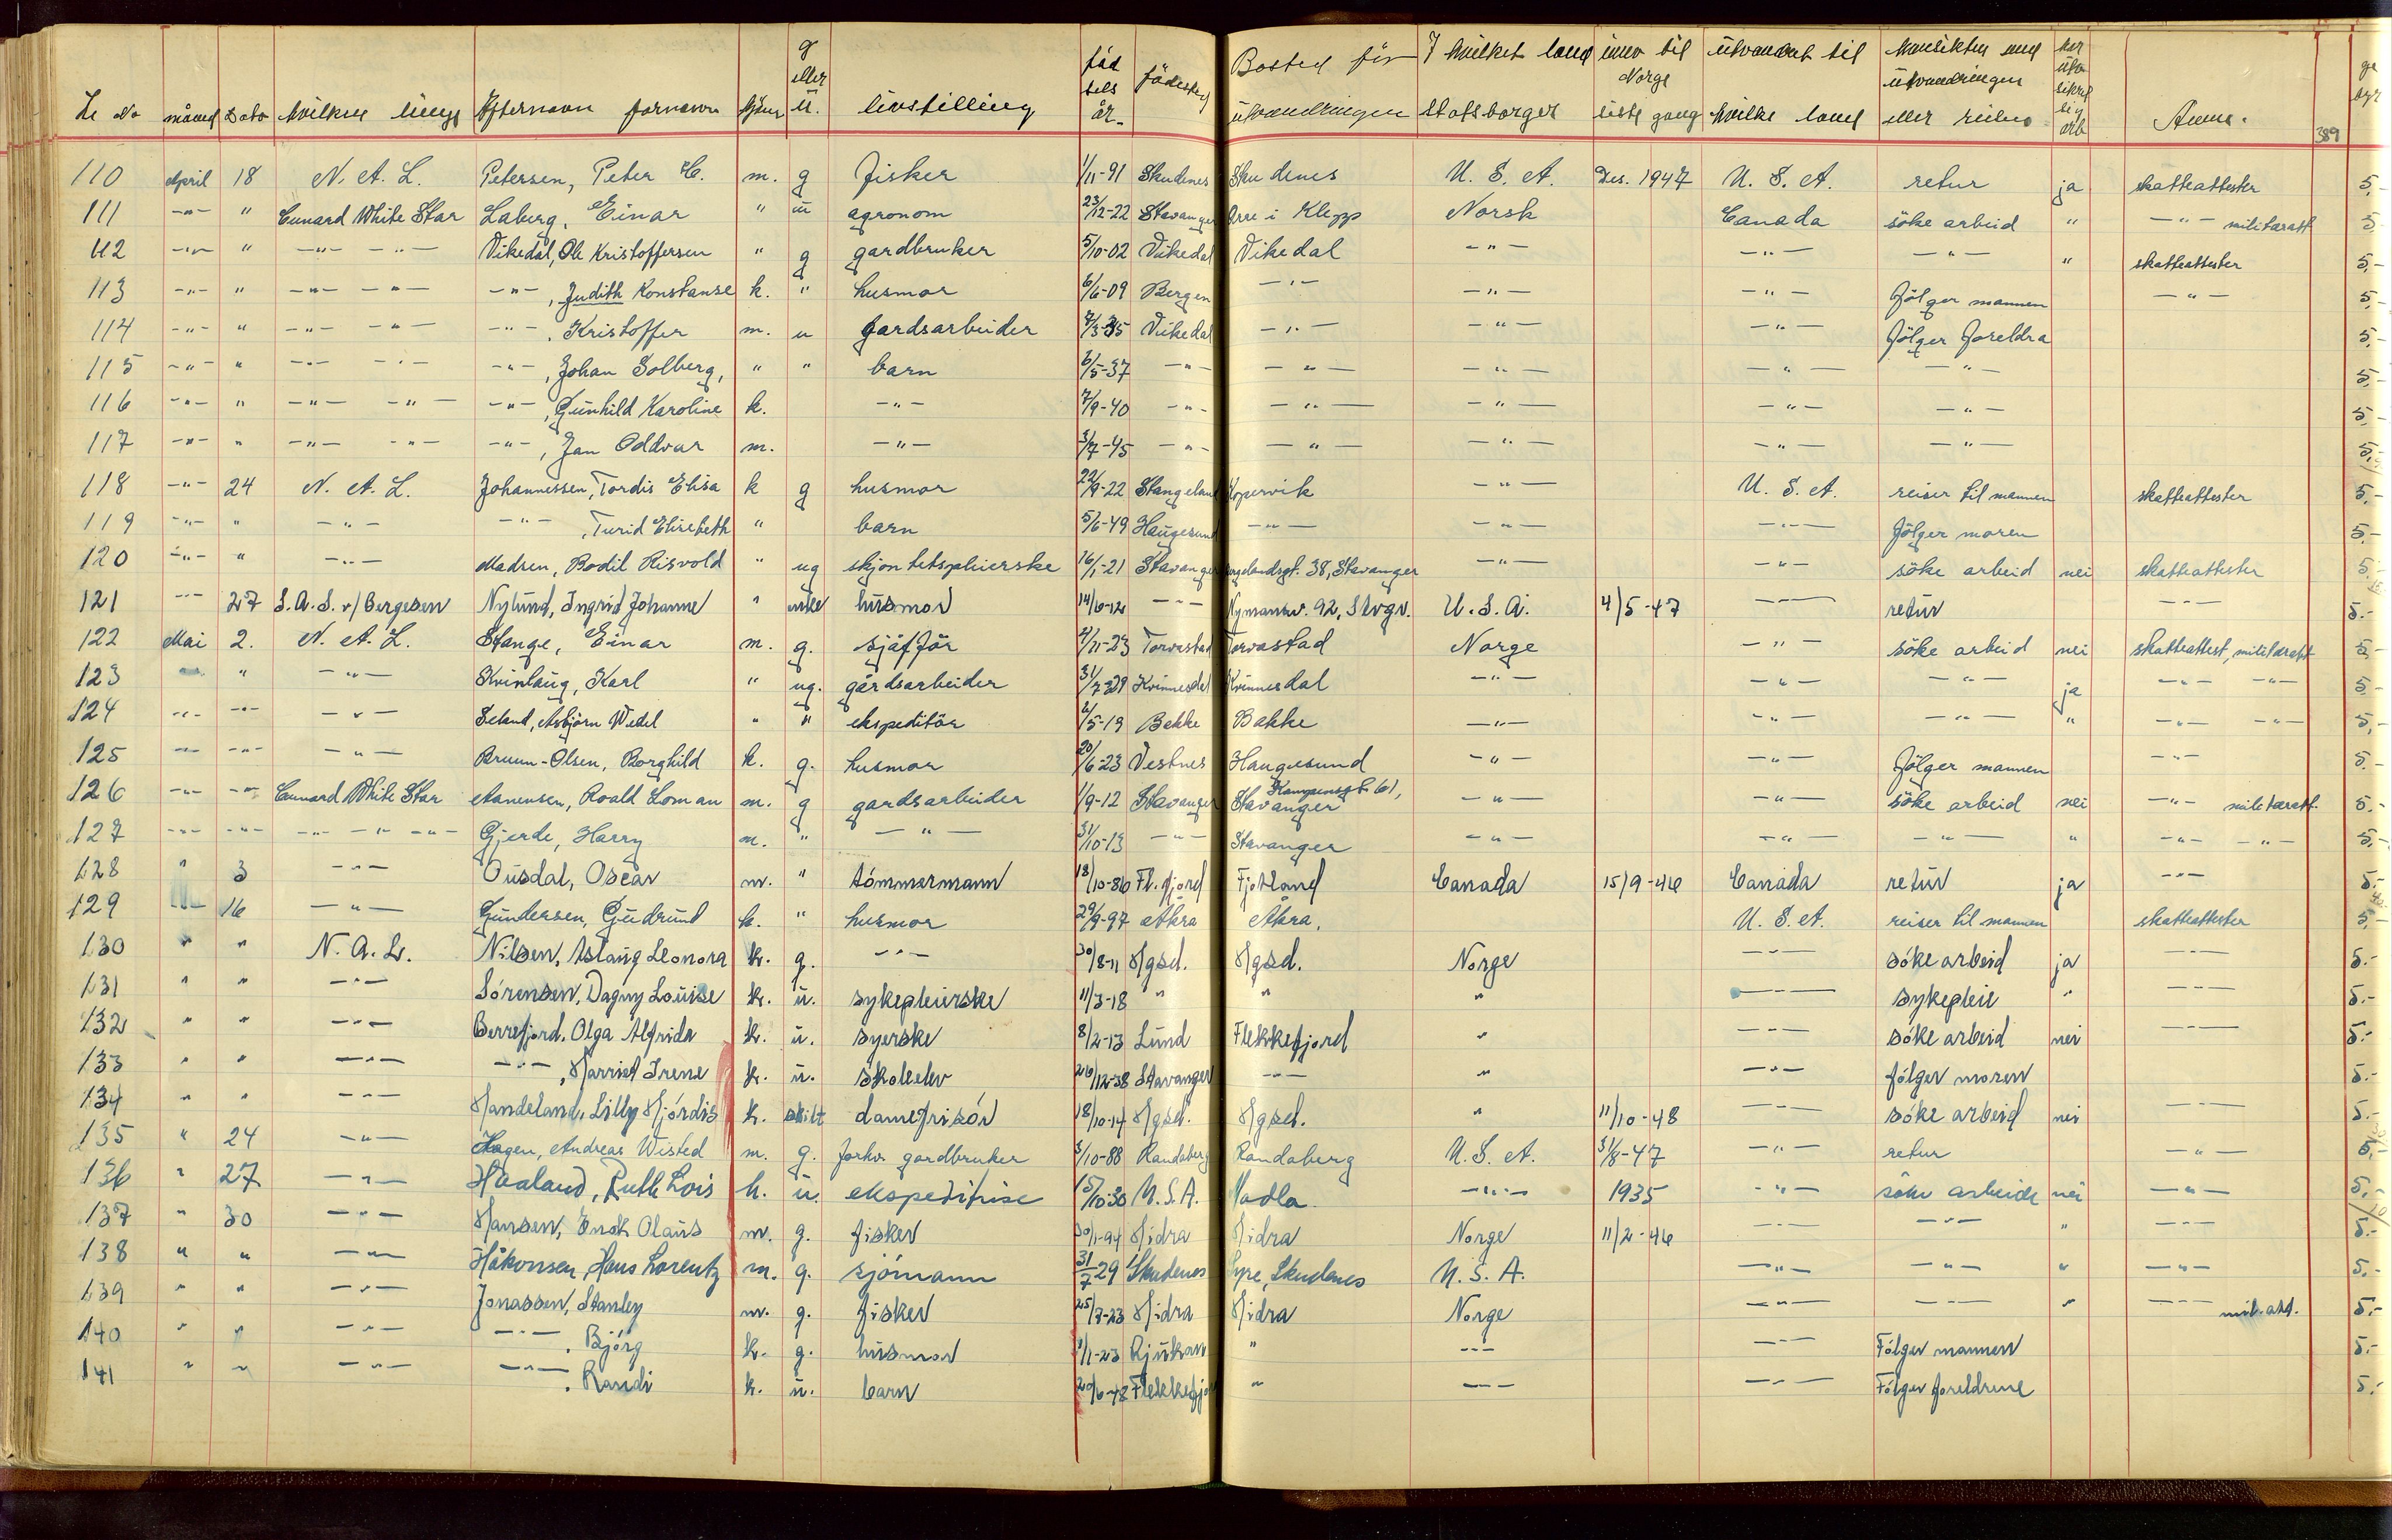 Lø No måned Dato hvilken linje Efternavn fornavn kjønn g eller u. livsstilling fødselsår fødested Bosted før utvandringen I hvilket land statsborger innv til Norge siste gang utvandret til hvilke land Hensikten med utvandringen eller reisen har utv. sikret sig arb Anm. 389
110 April 18 N. A. L. Petersen, Peter C. m. g fisker 1/11-91 Skudenes Skudenes U. S. A. Des. 1947 U. S. A. retur ja skatteattester 5,-
111 -"- " Cunard White Star Laberg, Einar " u agronom 23/12-22 Stavanger Orre i Klepp Norsk Canada söke arbeid " -"- militæratt 5
112 -"- " -"- -"- Vikedal, Ole Kristoffersen " g gardbruker 5/10-02 Vikedal Vikedal -"- -"- -"- " skatteattester 5,-
113 -"- " -"- -"- -"-, Judith Konstanse k. " husmor 6/6-09 Bergen -"- -"- -"- Fölger mannen -"- 5,-
114 -"- " -"- -"- -"-, Kristoffer m. u gardsarbeider 7/3-35 Vikedal -"- -"- -"- Fölger foreldra 5,-
115 -"- " -"- -"- -"-, Johan Solberg, " " barn 6/5-37 -"- -"- -"- -"- -"- 5,-
116 -"- " -"- -"- -"-, Gunhild Karoline k. -"- 7/9-40 -"- -"- -"- -"- -"- 5,-
117 -"- " -"- -"- -"-, Jan Oddvar m. -"- 3/7-45 -"- -"- -"- -"- -"- 5,-
118 -"- 24 N. A. L. Johannessen, Tordis Elisa k g husmor 22/9-22 Stangeland Kopervik -"- U. S. A. reiser til mannen skatteattester 5,-
119 -"- " -"- -"-, Turid Elisebeth " barn 5/6-49 Haugesund -"- -"- -"- Fölger moren 5,-
120 -"- " -"- Madsen, Bodil Risvold " ug skjönhetspleierske 16/1-21 Stavanger 38, Stavanger -"- -"- söke arbeid nei skatteattester 5,-
121 -"- 27 S.A.S. v/Bergesen Nylund, Ingrid Johanne " enke husmor 14/6-12 -"- 92, Stvgr. U. S. A. 4/5-47 -"- retur -"- 5.-
122 Mai 2. N. A. L. Stange, Einar m. g. sjåfför 4/11-23 Torvastad Torvastad Norge -"- söke arbeid nei skatteattest, militæratt 5,
123 " -"- Kvinlaug, Karl " ug. gårdsarbeider 31/7-29 Kvinnesdal Kvinnesdal -"- -"- -"- ja -"- -"- 5,-
124 -"- -"- -"- Seland, Asbjörn Wedel " " ekspeditör 2/5-19 Bakke Bakke -"- -"- -"- " -"- -"- 5,
125 -"- -"- -"- Bruun-Olsen, Borghild k. g. husmor 20/6-23 Vestnes Haugesund -"- -"- Fölger mannen -"- 5.-
126 -"- -"- Cunard White Star Aanensen, Roald Loman m. g gardsarbeider 1/9-12 Stavanger Kampensgt. 61, Stavanger -"- -"- söke arbeid nei -"- militæratt. 5.-
127 -"- -"- -"- -"- -"- Gjerde, Harry m. " -"- 31/10-13 -"- Stavanger -"- -"- -"- " -"- -"- 5,-
128 " 3 -"- Ousdal, Oscar m. " tömmermann 18/10-86 Fl.fjord Fjotland Canada 15/9-46 Canada retur ja -"- 5.-
129 -"- 16 -"- Gundersen, Gudrund k. " husmor 29/9-97 Åkra Åkra. U. S. A. reiser til mannen skatteattester 5,-
130 " " N. A. L. Nilsen, Aslaug Leonora k. g. -"- 30/8-11 Hgsd. Hgsd. Norge -"- söke arbeid ja -"- 5.-
131 " " -"- Sörensen, Dagny Louise k. u. sykepleierske 11/3-18 " " " -"- sykepleie " -"- 5.-
132 " " -"- Berrefjord, Olga Alfrida k. u. syerske 8/2-13 Lund Flekkefjord " -"- söke arbeid nei -"- 5.-
133 " " -"- -"-, Harriet Irene k. u. skoleelev 26/12-38 Stavanger -"- " -"- fölger moren 5.-
134 " " -"- Handeland, Lilly Hjördis k. skilt damefrisör 18/10-14 Hgsd. Hgsd. " 11/10-48 -"- söke arbeid nei -"- 5.-
135 " 24 -"- Hagen, Andreas Wisted m. g. forhv. gardbruker 3/10-88 Randaberg Randaberg U. S. A. 31/8-47 -"- retur -"- 5,-
136 " 27 -"- Håaland, Ruth Lois k. u. ekspeditrise 15/10-30 U.S.A. Madla -"- 1935 -"- söke arbeide nei -"- 5,-
137 " 30 -"- Hansen, Enok Olaus m. g. fisker 30/1-94 Hidra Hidra Norge 11/2-46 -"- -"- " -"- 5.-
138 " " -"- Håkonsen, Hans Lorentz m. g. sjömann 31/7 29 Skudenes Syre, Skudenes U.S.A. -"- -"- " -"- 5.-
139 " " -"- Jonassen, Stanley m. g. fisker 25/7-23 Hidra Hidra Norge -"- -"- " -"- mil.att. 5.-
140 " " -"- -"-, Björg k. g. husmor 1/1-23 Rjukan " -"- -"- Fölger mannen 5.-
141 " " -"- -"-, Randi k. u. barn 20/6-48 Flekkefj " -"- -"- Fölger foreldrene 5.-